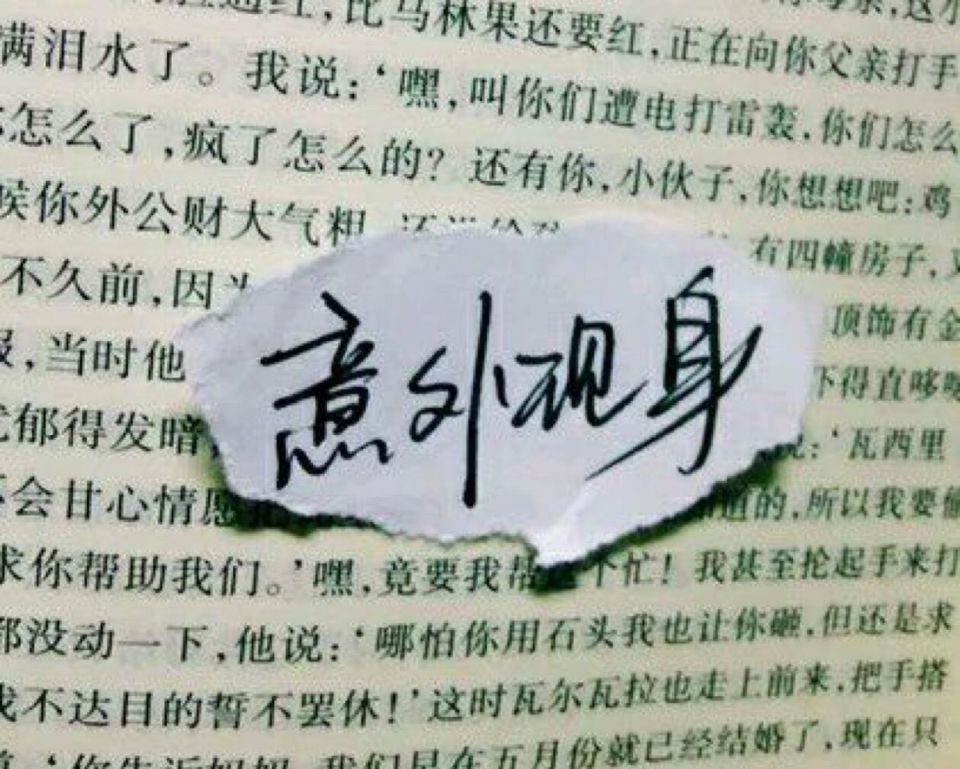 母亲，这小
脸通红，比马林果还要红，正在向你父亲打手
满泪水了。我说：‘嘿，叫你们遭电打雷轰，你们怎么
怎么了，疯了怎么的？还有你，小伙子，你想想吧：鸡
候你外公财大气粗，还 有四幢房子，
不久前，因为 顶饰有金
服，当时他 得直哆嗦
忧郁得发暗 说：‘瓦西里
不会甘心情愿 知道的，所以我要偷
意外现身
求你帮助我们。’嘿，竟要我帮这个忙！我甚至抡起手来打
都没动一下，他说：‘哪怕你用石头我也让你砸，但还是求
我不达目的誓不罢休！’这时瓦尔瓦拉也走上前来，把手搭
‘你告诉妈妈，我们早在五月份就已经结婚了，现在只